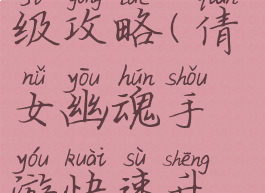 级攻略(倩
nǚ yōu hún shǒu
女幽魂手
yóu kuài sù shēng
游快速升